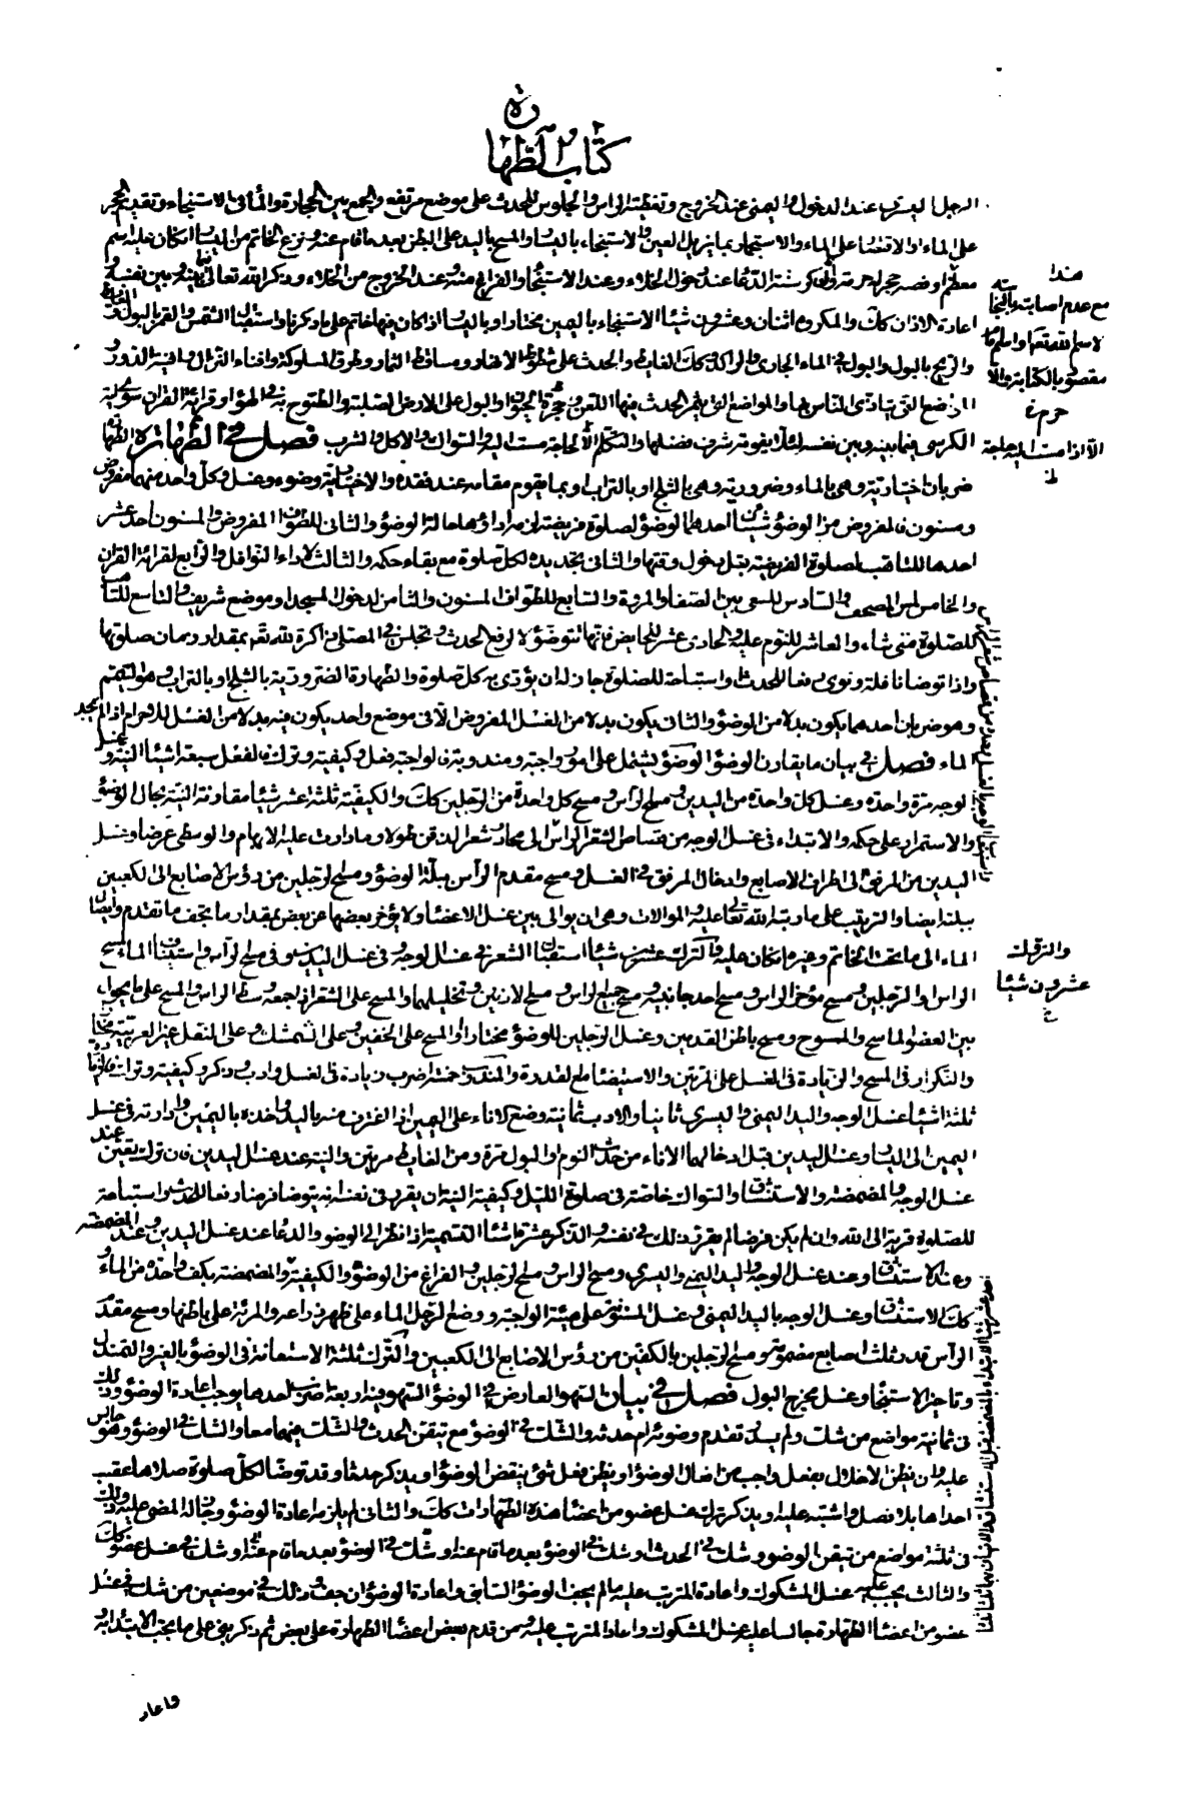 كتاب الطهارة
الرجل اليسرى عند الدخول واليمنى عند الخروج وتغطية الراس والجلوس للحدث على موضع مرتفع والجمع بين الحجارة والماء في الاستنجاء وتقديم الحجر
على الماء والاقتصار على الماء والاستجمار بما يزيل العين والاستنجاء باليسار والمسح باليد على البطن بعد ما قام عنه ونزع الخاتم من اليسار ان كان عليه اسم
معظم او فصه حجر له حرمة والدعاء عند دخول الخلاء وعند الاستنجاء والفراغ منه وعند الخروج من الخلاء وذكر الله تعالى فيما بينه وبين نفسه و
اعادة الاذان كك والمكروه اثنان وعشرون شيئا الاستنجاء باليمين مختارا وباليسار اذا كان فيها خاتم على ما ذكرنا واستقبال الشمس والقمر بالبول
والريح بالبول والبول في الماء الجارى والراكد كك الغايط والحدث على شطوط الانهار ومساقط الثمار وطرق المسلوكة وافناء النزال وافنية الدور و
المواضع التى يتاذى الناس بها والمواضع التى الحدث فيها اللعن وحجرة الحيوان والبول على الارض الصلبة والطموح به في الهواء وقرائة القران سوى اية
الكرسى فيما بينه وبين نفسه لئلا يفوته شرف فضلها والتكلم الا لحاجة مست اليه والسواك والاكل والشرب فصل في الطهارة الطهارة
ضربان اختيارية وهى بالماء وضرورية وهى بالثلج او بالتراب او بما يقوم مقامه عند فقده والاختيارية وضوء وغسل وكل واحد منهما مفروض
ومسنون فالمفروض من الوضوء شيئان احدهما الوضوء لصلوة فريضة لزمه اداؤها حالة الوضوء والثانى للطواف المفروض والمسنون احد عشر
احدها للتاهب لصلوة الفريضة قبل دخول وقتها والثانى تجديده لكل صلوة مع بقاء حكمه والثالث لاداء النوافل والرابع لقرائة القران
والخامس لمس المصحف والسادس للسعى بين الصفا والمروة والسابع للطواف المسنون والثامن لدخول المسجد او موضع شريف والتاسع للتاهب
للصلوة متى شاء والعاشر للنوم عليه والحادى عشر للحايض فانها تتوضؤ لا لرفع الحدث وتجلس في المصلى ذاكرة لله تعه بمقدار زمان صلوتها
واذا توضا نافلة ونوى رفعا للحدث واستباحة للصلوة جاز له ان يؤدى به كل صلوة والطهارة الضرورية بالثلج او بالتراب وهو التيمم
وهو ضربان احدهما يكون بدلا من الوضوء والثانى يكون بدلا من الغسل المفروض الا في موضع واحد يكون فيه بدلا من الغسل للاحرام اذا لم يجد
الماء فصل في بيان ما يقارن الوضوء الوضوء يشتمل على امور واجبة ومندوبة فالواجبة فعل وكيفية وترك فالفعل سبعة اشياء النية وغسل
الوجه مرة واحدة وغسل كل واحدة من اليدين ومسح الراس ومسح كل واحدة من الرجلين كك والكيفية ثلثة عشر شيئا مقارنة النية بحال الوضوء
والاستمرار على حكمه والابتداء في غسل الوجه من قصاص الشعر الراس الى محادر شعر الذقن طولا وما دارت عليه الابهام والوسطى عرضا وغسل
اليدين من المرفق الى اطراف الاصابع وادخال المرفق في الغسل ومسح مقدم الرأس ببلة الوضوء ومسح الرجلين من رؤس الاصابع الى الكعبين
ببلته ايضا والترتيب على ما رتبه الله تعالى عليه والموالات وهى ان يوالى بين غسل الاعضاء ولا يؤخر بعضها عن بعض بمقدار ما يجف ما تقدم وايصال
الماء الى ما تحت الخاتم وغيره ما كان عليه والترك عشرون شيئا استقبال الشعر في غسل الوجه وفى غسل اليدين وفى مسح الرأس واستيناف الماء لمسح
الراس والرجلين ومسح مؤخر الراس ومسح احد جانبيه ومسح جميع الراس ومسح الاذنين وتخليلهما والمسح على الشعر ان جمعه وسط الراس والمسح على ما يحول
بين العضو الماسح والممسوح ومسح باطن القدمين وغسل الرجلين للوضوء مختارا والمسح على الخفين وعلى الشمشك وعلى النعل غير العربية مختارا
والتكرار فى المسح والزيادة فى الغسل على المرتين والاستيضاء مع القدرة والمندوب خمسة اضرب زيادة فى الغسل وادب وذكر وكيفية وترك فالزيادة
ثلثة اشياء غسل الوجه واليد اليمنى واليسرى ثانيا والادب ثمانية وضع الاناء على اليمين اذا اغترف منه باليد واخذه باليمين وادارته في غسل
اليمين الى اليسار وغسل اليدين قبل ادخالهما الاناء من حدث النوم والبول مرة ومن الغايط مرتين والنية عند غسل اليدين فان ترك تعين عند
غسل الوجه والمضمضة والاستنشاق والسواك خاصة فى صلوة الليل وكيفية النية ان يقرر فى نفسه انه يتوضا فرضا رفعا للحدث واستباحة
للصلوة قربة الى الله وان لم يكن فرضا لم يقرر ذلك في نفسه والذكر عشرة اشياء التسمية اذا نظر الى الوضوء والدعاء عند غسل اليدين وعند المضمضة
وعند الاستنشاق وعند غسل الوجه واليد اليمنى واليسرى ومسح الراس ومسح الرجلين والفراغ من الوضوء والكيفية والمضمضة بكف واحدة من الماء و
كك الاستنشاق وغسل الوجه باليد اليمنى وغسل المسنون على هيئة الواجبة ووضع الرجل الماء على ظهر ذراعه والمرئة على باطنها ومسح مقدم
الرأس قدر ثلث اصابع مضمومة ومسح الرجلين بالكفين من رؤس الاصابع الى الكعبين والترك ثلثة الاستعانة فى الوضوء بالغير والتمندل
وتاخير الاستنجاء وغسل مخرج البول فصل في بيان السهو العارض في الوضوء السهو فيه اربعة اضرب احدها يوجب اعادة الوضوء وذلك
فى ثمانية مواضع من شك ولم يدر تقدم وضوئه ام حدثه والشك في الوضوء مع تيقن الحدث والشك فيهما معا والشك في الوضوء وهو جالس
عليه وان يظن الاخلال بفعل واجب من افعال الوضوء او يظن فعل شئ ينقض الوضوء او يذكر حدثا وقد توضا لكل صلوة صلاها عقيب
احداها بلا فصل واشتبه عليه ويذكر ترك غسل عضو من اعضاء هذه الطهارات كك والثانى لم يلزمه اعادة الوضوء وجاز له المضى عليه وذلك
فى ثلثة مواضع من تيقن الوضوء وشك في الحدث او شك في الوضوء بعد ما قام عنه او شك في غسل عضو كك
والثالث يجب عليه غسل المشكوك واعادة المترتب عليه ما لم يجف الوضوء السابق واعادة الوضوء ان جف وذلك في موضعين من شك في غسل
عضو من اعضاء الطهارة جالسا عليه غسل المشكوك واعاد المترتب عليه ومن قدم بعض اعضاء الطهارة على بعض ثم ذكر بنى على ما يجب الابتداء به
واعاد
هذا
مع عدم اصابته بالنجاسة
لاسم الله تعه واسم
مقصود بالكتابة والا
حرم
الا اذا مست اليه حاجة
والترك
عشرون شيئا